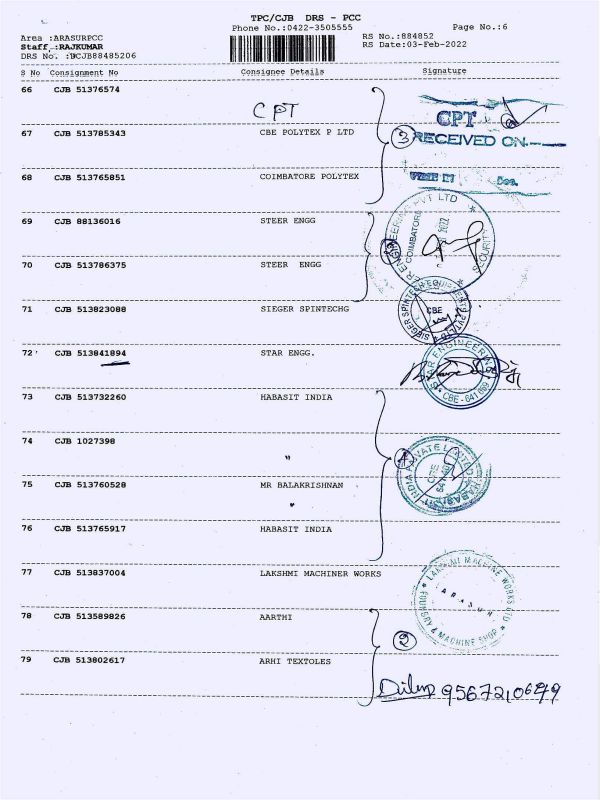 TPC/CJB DRS - PCC
Phone No.:0422-3505555 Page No.:6
Area :ARASURPCC RS No.:884852
Staff :RAJKUMAR RS Date:03-Feb-2022
DRS No. :BCJB88485206
S No Consignment No Consignee Details Signature
66 CJB 51376574
CPT
CPT
67 CJB 513785343 CBE POLYTEX P LTD
3 RECEIVED ON
68 CJB 513765851 COIMBATORE POLYTEX
69 CJB 88136016 STEER ENGG
COIMBATORE
SECURITY
70 CJB 513786375 STEER ENGG
71 CJB 513823088 SIEGER SPINTECHG
CBE
72 CJB 513841894 STAR ENGG.
STAR ENGINEERING
73 CJB 513732260 HABASIT INDIA
74 CJB 1027398 "
4
HABASIT INDIA PRIVATE LIMITED
75 CJB 513760528 MR BALAKRISHNAN
"
76 CJB 513765917 HABASIT INDIA
77 CJB 513837004 LAKSHMI MACHINER WORKS
LAKSHMI MACHINE WORKS LTD
ARASUR
FOUNDRY & MACHINE SHOP
78 CJB 513589826 AARTHI
2
79 CJB 513802617 ARHI TEXTOLES